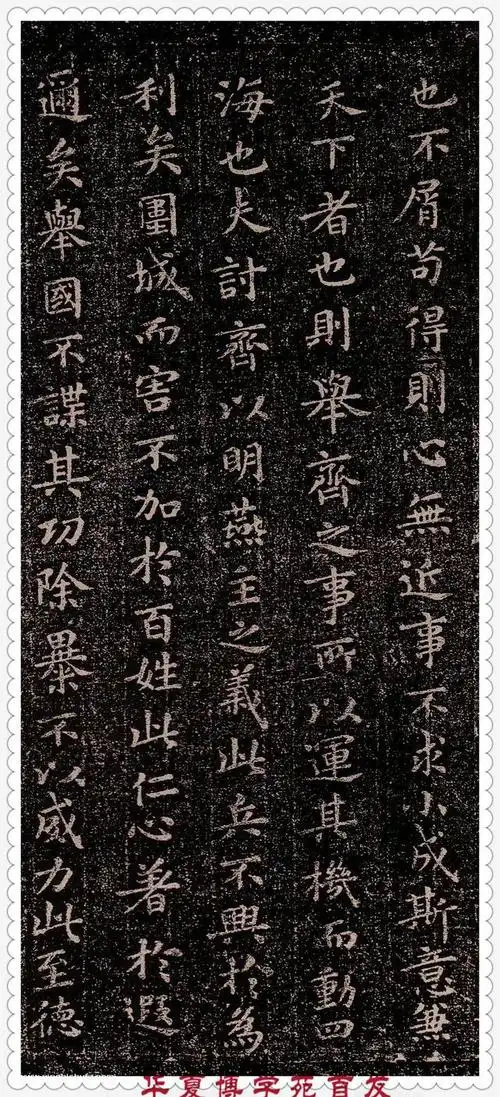 也不屑苟得則心無近事不求小成斯意兼
天下者也則舉齊之事所以運其機而動四
海也夫討齊以明燕主之義此兵不興於為
利矣圍城而害不加於百姓此仁心著於遐
邇矣舉國不謀其功除暴不以威力此至德
华夏博学苑首发